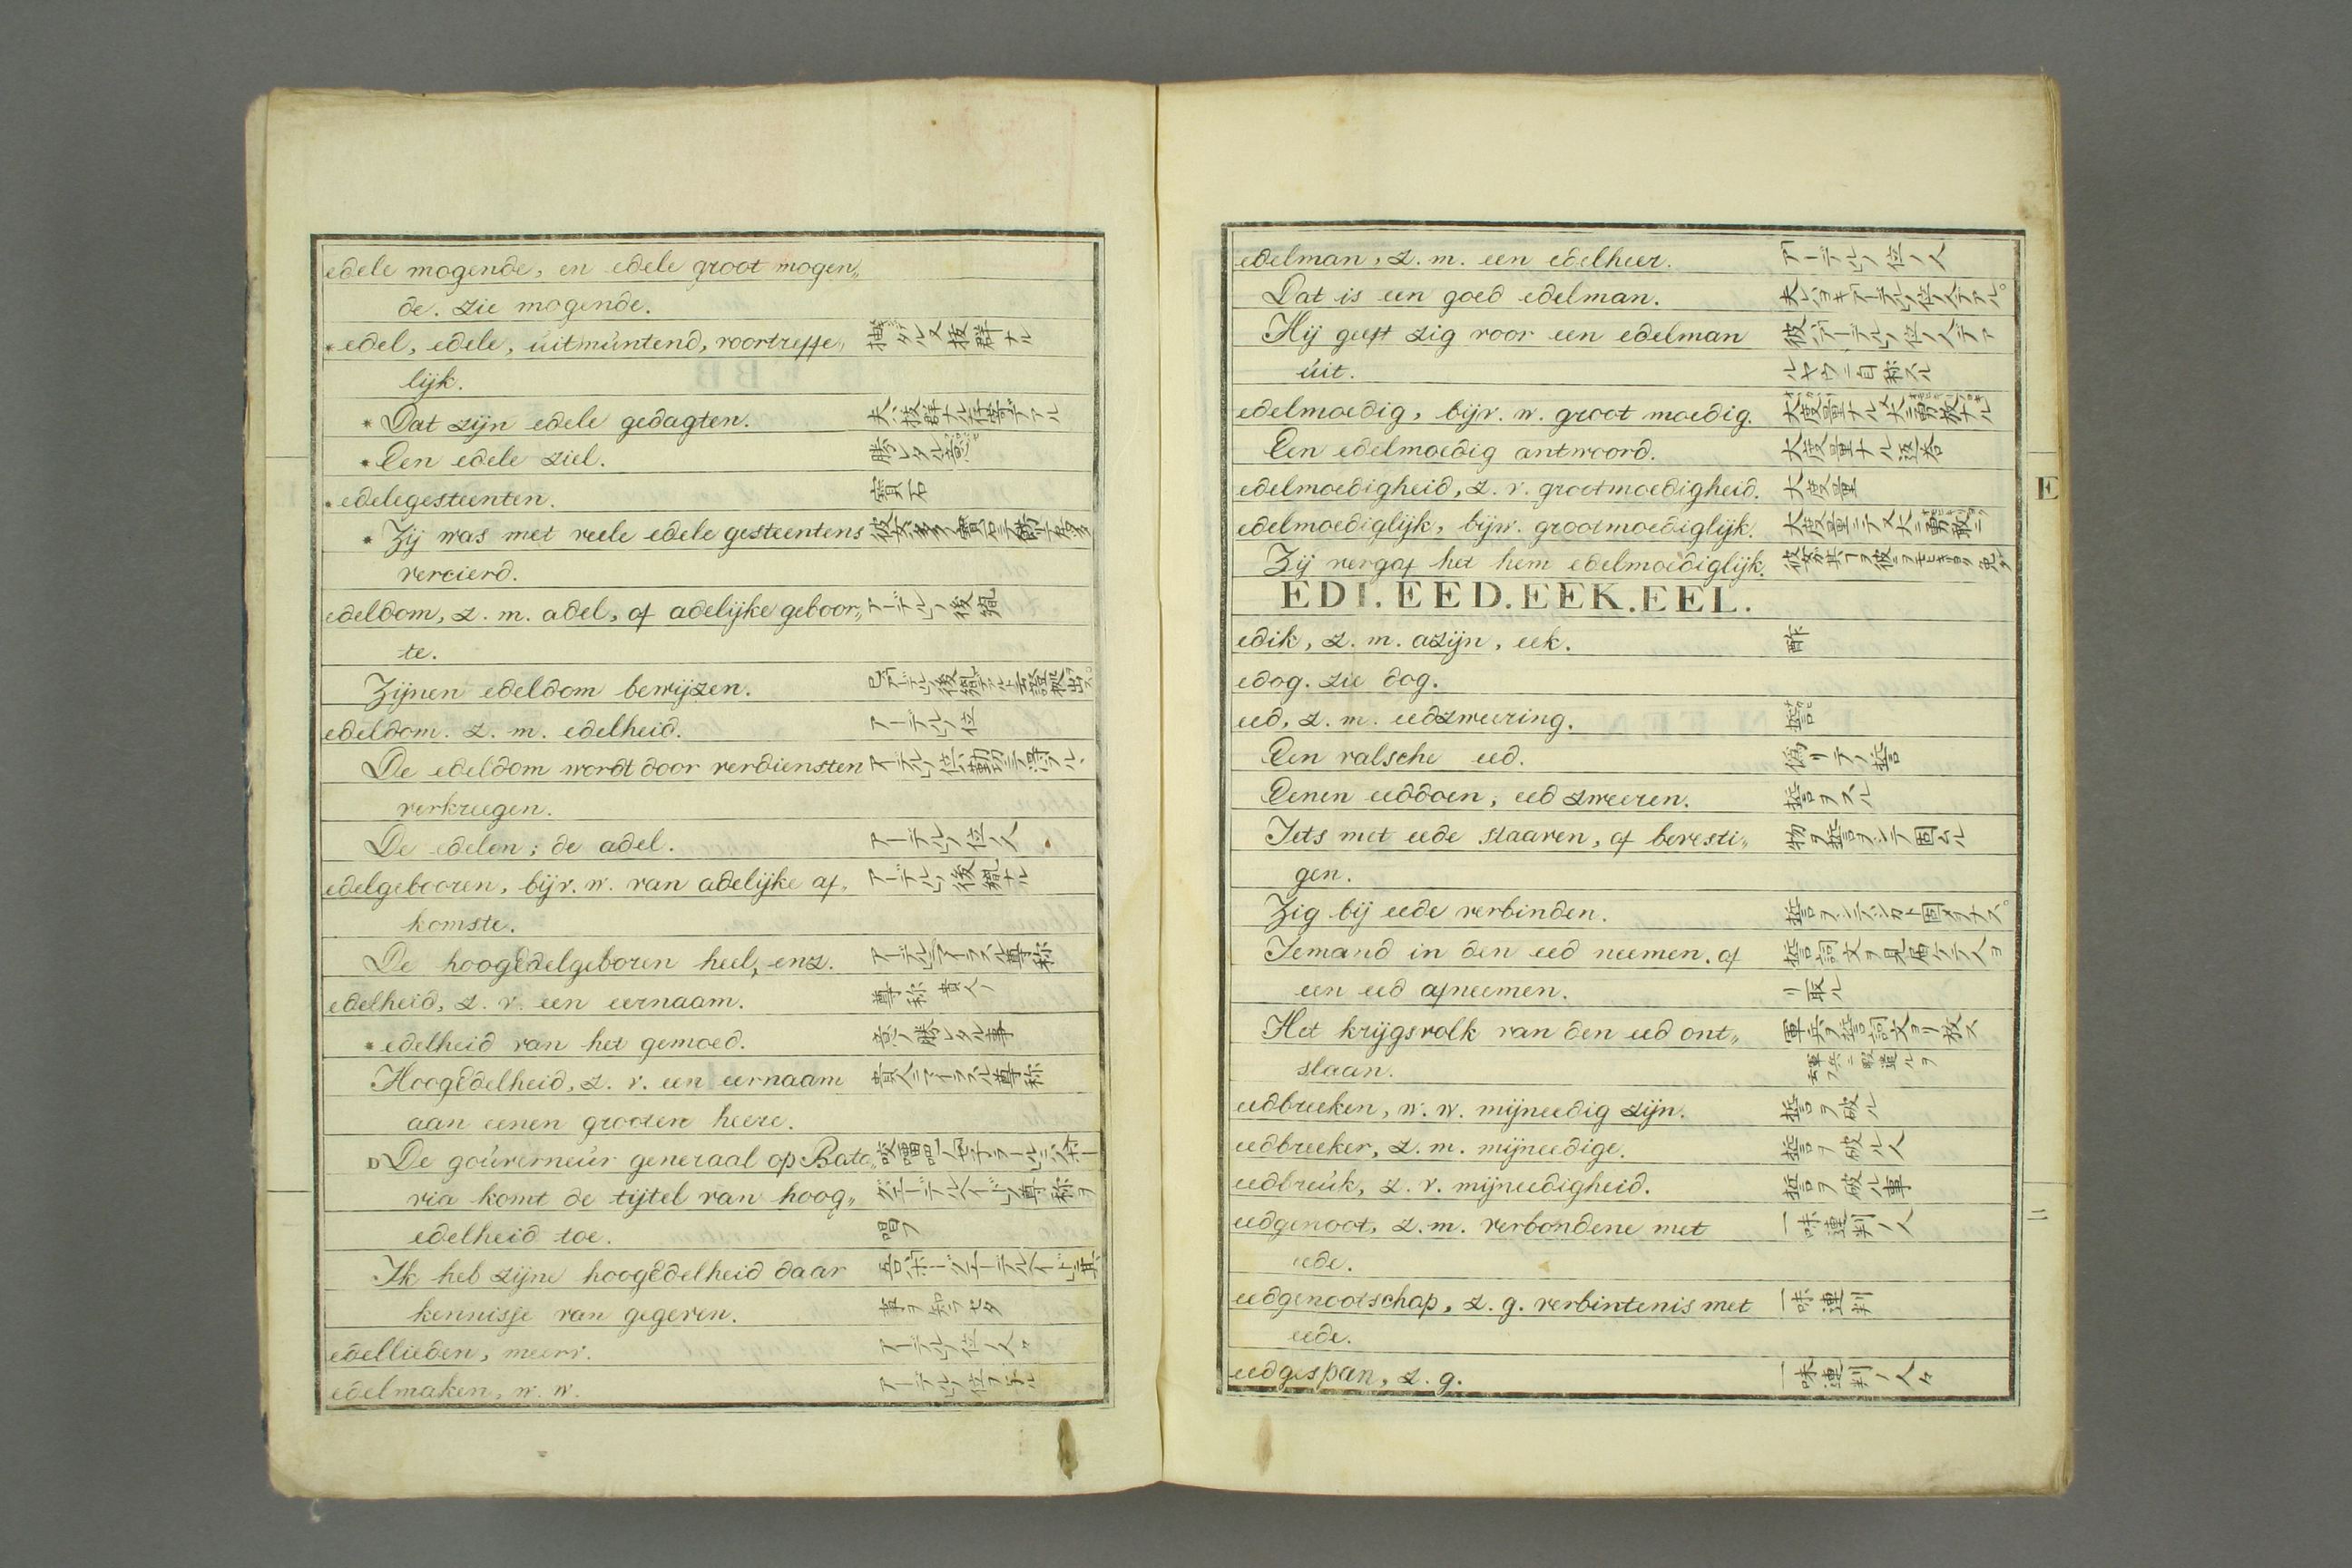 edele mogende, en edele groot mogen„
de. zie mogende.
* edel, edele, úitmúntend, voortreffe„ 抽タル又抜群ナル
lijk.
* Dat zijn edele gedagten. 夫ハ抜群ナル存寄デアル
* Een edele ziel. 勝レタル意
* edelegesteenten. 寳石
* Zij was met veele edele gesteentens
vercierd.
edeldom, z. m. adel, of adelijke geboor„ アーデルノ後胤
te.
Zijnen edeldom bewijzen.
edeldom. z. m. edelheid. アーデルノ位
De edeldom wordt door verdiensten アーデルノ位ハ勤功ニテ得ラルヽ
verkreegen.
De edelen; de adel. アーデルノ位ノ人
edelgebooren, bijv. w. van adelijke af„ アーデルノ後胤ナル
komste.
De hoogEdelgeboren heel, enz. アーデルニマイラスル尊称
edelheid, z. v. een eernaam. 尊称 貴人ノ
* edelheid van het gemoed. 意ノ勝レタル事
HoogEdelheid, z. v. een eernaam 貴人ニマイラスル尊称
aan eenen grooten heere.
D De goúverneúr generaal op Bata„
via komt de tijtel van hoog„ グエーデルヘイドノ尊称ヲ
edelheid toe. 唱フ
Ik heb zijne hoogEdelheid daar 吾ホーグエーデルヘイドニ其
kennisse van gegeven. 事ヲ知ラセタ
edellieden, meerv. アーデルノ位ノ人々
edelmaken, w. w. アーデルノ位ヲ与ル
edelman, z. m. een edelheer. アーデルノ位ノ人
Dat is een goed edelman. 夫レハヨキアーデルノ位ノ人デアル。
Hij geeft zig voor een edelman 彼ハアーデルノ位ノ人デア
úit. ルヤウニ自称スル
edelmoedig, bijv. w. groot moedig. 大度量ナル又大ニ勇敢ナル
Een edelmoedig antwoord. 大度量ナル返答
edelmoedigheid, z. v. grootmoedigheid. 大度量
edelmoediglijk, bijw. grootmoediglijk. 大度量ニテ又大ニ勇敢ニ
Zij vergaf het hem edelmoediglijk.
EDI. EED. EEK. EEL.
edik, z. m. azijn, eek. 酢
edog. zie dog.
eed, z. m. eedzweering. 誓
Een valsche eed. 偽リテノ誓
Eenen eeddoen; eed zweeren. 誓ヲスル
Iets met eede staaven, of bevesti„ 物ヲ誓ヲシテ固ムル
gen.
Zig bij eede verbinden.
Iemand in den eed neemen. of 誓詞文ヲ見届ケテ人ヨ
een eed afneemen. リ取ル
Het krijgsvolk van den eed ont„ 軍兵ヲ誓詞文ヨリ放ス
slaan.
eedbreeken, w. w. mijneedig zijn. 誓ヲ破ル
eedbreeker, z. m. mijneedige. 誓ヲ破ル人
eedbreúk, z. v. mijneedigheid. 誓ヲ破ル事
eedgenoot, z. m. verbondene met 一味連判ノ人
eede.
eedgenootschap, z. g. verbintenis met 一味連判
eede.
eedgespan, z. g. 一味連判ノ人々
E
二